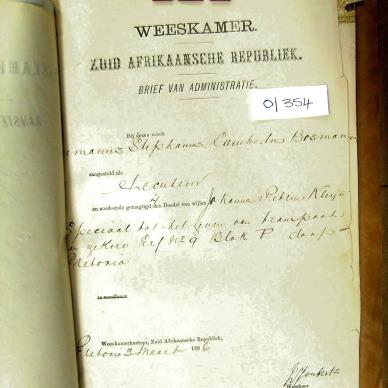 WEESKAMER.
ZUID AFRIKAANSCHE REPUBLIEK.
BRIEF VAN ADMINISTRATIE.
0/354
Bij deze wordt
Stephanus Lambertus Bosman
aangesteld als
Executeur
en zoodanig gemagtigd den Boedel van wijlen Johanna Petrus Kleyn
Speciaal tot het geven van transport
van zeker Erf No 9 Blok P. dorp
Pretoria
te
Weeskamerkantoor, Zuid Afrikaansche Republiek,
Pretoria 3 Maart 1886